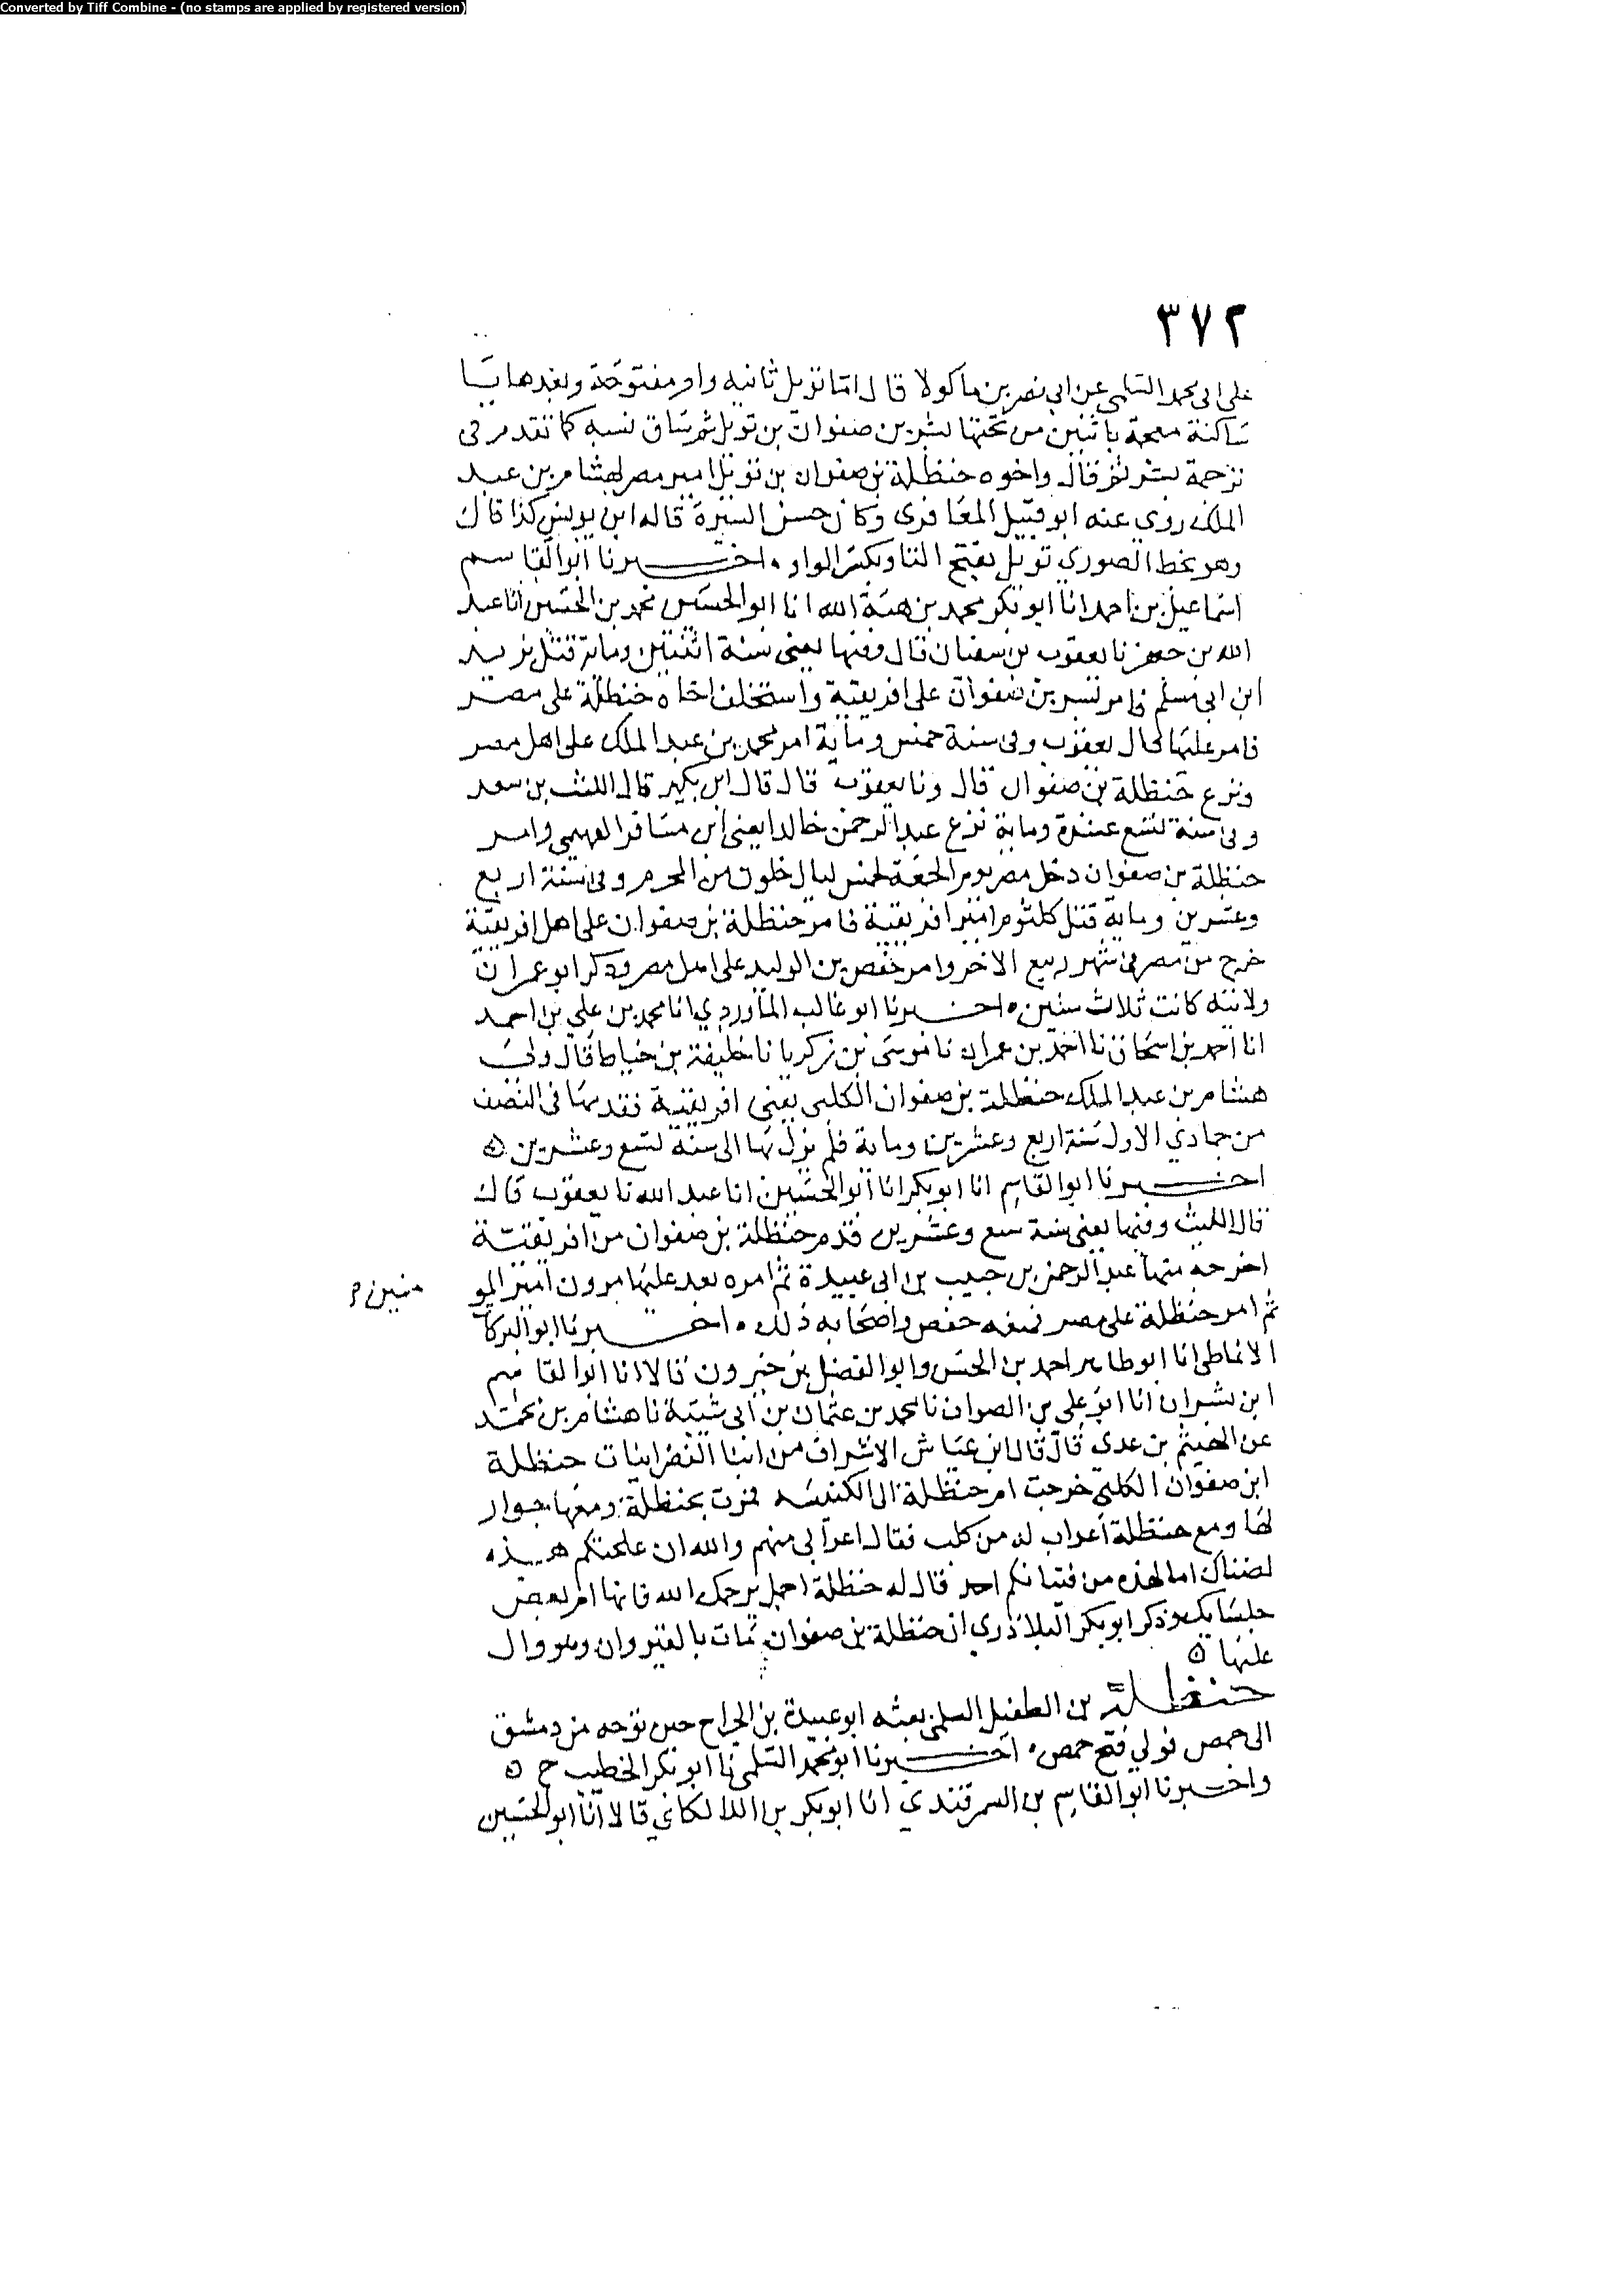 Converted by Tiff Combine - (no stamps are applied by registered version)
٣٧٢
على ابى محمد السلمى عن ابى نصر بن ماكولا قال اما تويل ثانيه واو مفتوحة وبعدها يا
ساكنة معجمة باثنين من تحتها بشر بن صفوان بن تويل ثم ساق نسبه كما تقدم فى
ترجمة بشر ثم قال واخوه حنظلة بن صفوان بن تويل امير مصر لهشام بن عبد
الملك روى عنه ابو قبيل المعافرى وكان حسن السيرة قاله ابن يونس كذا قال
وهو بخط الصوري تويل بفتح التا وبكسر الواو ه اخبرنا ابو القاسم
اسماعيل بن احمد انا ابو بكر محمد بن هبة الله انا ابو الحسين محمد بن الحسين انا عبد
الله بن جعفر نا يعقوب بن سفيان قال وفيها يعنى سنة اثنتين وماية قتل يزيد
ابن ابى مسلم فامر بشر بن صفوان على افريقية واستخلف اخاه حنظلة على مصر
فامر عليها قال يعقوب وفى سنة خمس وماية امر محمد بن عبد الملك على اهل مصر
ونزع حنظلة بن صفوان قال ونا يعقوب قال قال ابن بكير قال الليث بن سعد
وفى سنة تسع عشرة وماية نزع عبد الرحمن خالد ايعنى ابن مسافر الفهمي وامر
حنظلة بن صفوان دخل مصر يوم الجمعة لخمس ليال خلون من المحرم وفى سنة اربع
وعشرين وماية قتل كلثوم امير افريقية فامر حنظلة بن صفوان على اهل افريقية
خرج من مصر فى شهر ربيع الاخر وامر حفص بن الوليد على اهل مصر وذكر ابو عمر ان
ولايته كانت ثلاث سنين ه اخبرنا ابو غالب الماوردي انا محمد بن علي بن احمد
انا احمد بن اسحاق نا احمد بن عمران نا موسى بن زكريا نا خليفة بن خياط قال ولى
هشام بن عبد الملك حنظلة بن صفوان الكلبى يعنى افريقية فقدمها فى النصف
من جمادي الاول سنة اربع وعشرين وماية فلم يزل بها الى سنة تسع وعشرين ه
اخبرنا ابو القاسم انا ابو بكر انا ابو الحسين انا عبد الله نا يعقوب قال
قال الليث وفيها يعنى سنة سبع وعشرين قدم حنظلة بن صفوان من افريقية
اخرجه منها عبد الرحمن بن حبيب بن ابى عبيدة ثم امره بعد عليها مرون امير المو
منين
ثم امر حنظلة على مصر فمنعه حفص واصحابه ذلك ه اخبرنا ابو البركات
الانماطى انا ابو طاهر احمد بن الحسن وابو الفضل بن خيرون قالا انا ابو القاسم
ابن بشران انا ابو على بن الصواف نا محمد بن عثمان بن ابى شيبة نا هشام بن محمد
عن الهيثم بن عدى قال قال ابن عياش الاشراف من ابنا النصرانيات حنظلة
ابن صفوان الكلبى خرجت ام حنظلة الى الكنيسه فمرت بحنظلة ومعها جوار
لها ومع حنظلة اعراب له من كلب فقال اعرابى منهم والله ان علجتكم هذه
لضناك اما لهذه من فتيانكم احد قال له حنظلة اجمل يرحمك الله فانها ام بعض
جلسايك وذكر ابو بكر البلاذري ان حنظلة بن صفوان مات بالقيروان وهو وال
عليها ه
حنظلة بن الطفيل السلمى بعثه ابو عبيدة بن الجراح حين توجه من دمشق
الى حمص فولي فتح حمص ه اخبرنا ابو محمد السلمى نا ابو بكر الخطيب ح ه
واخبرنا ابو القاسم بن السمرقندي انا ابو بكر بن اللالكائي قالا انا ابو الحسين